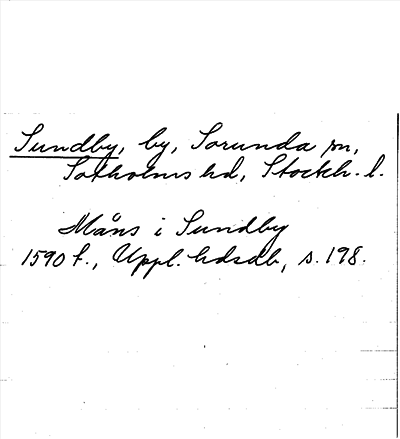 Sundby, by, Sorunda sn,
Sotholms hd, Stockh. l.
Måns i Sundby
1590 f., Uppl. hdsdb, s. 198.